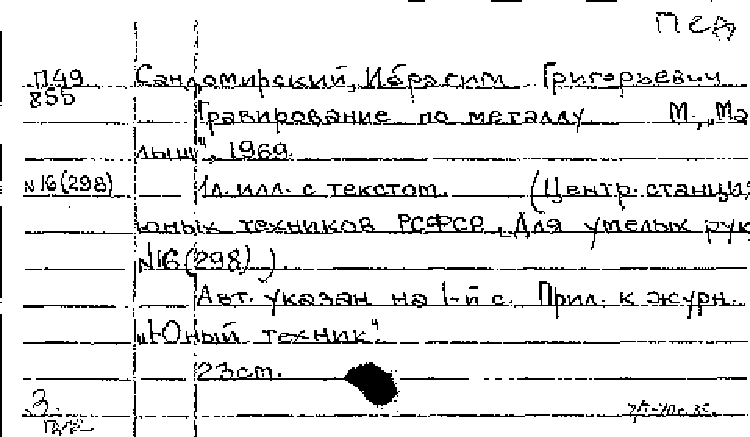 Пед
П49 Сандомирский, Ибрагим Григорьевич
855
Гравирование по металлу М., „Ма
лыш", 1969.
N16(298) 1 л. илл. с текстом. (Центр. станция
юных техников РСФСР, Для умелых рук
N16(298)).
Авт. указан на 1-й с. Прил. к журн.
„Юный техник".
23см.
3